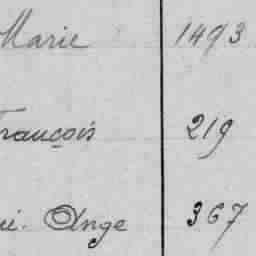 Marie 1493
François 219
Ange 367